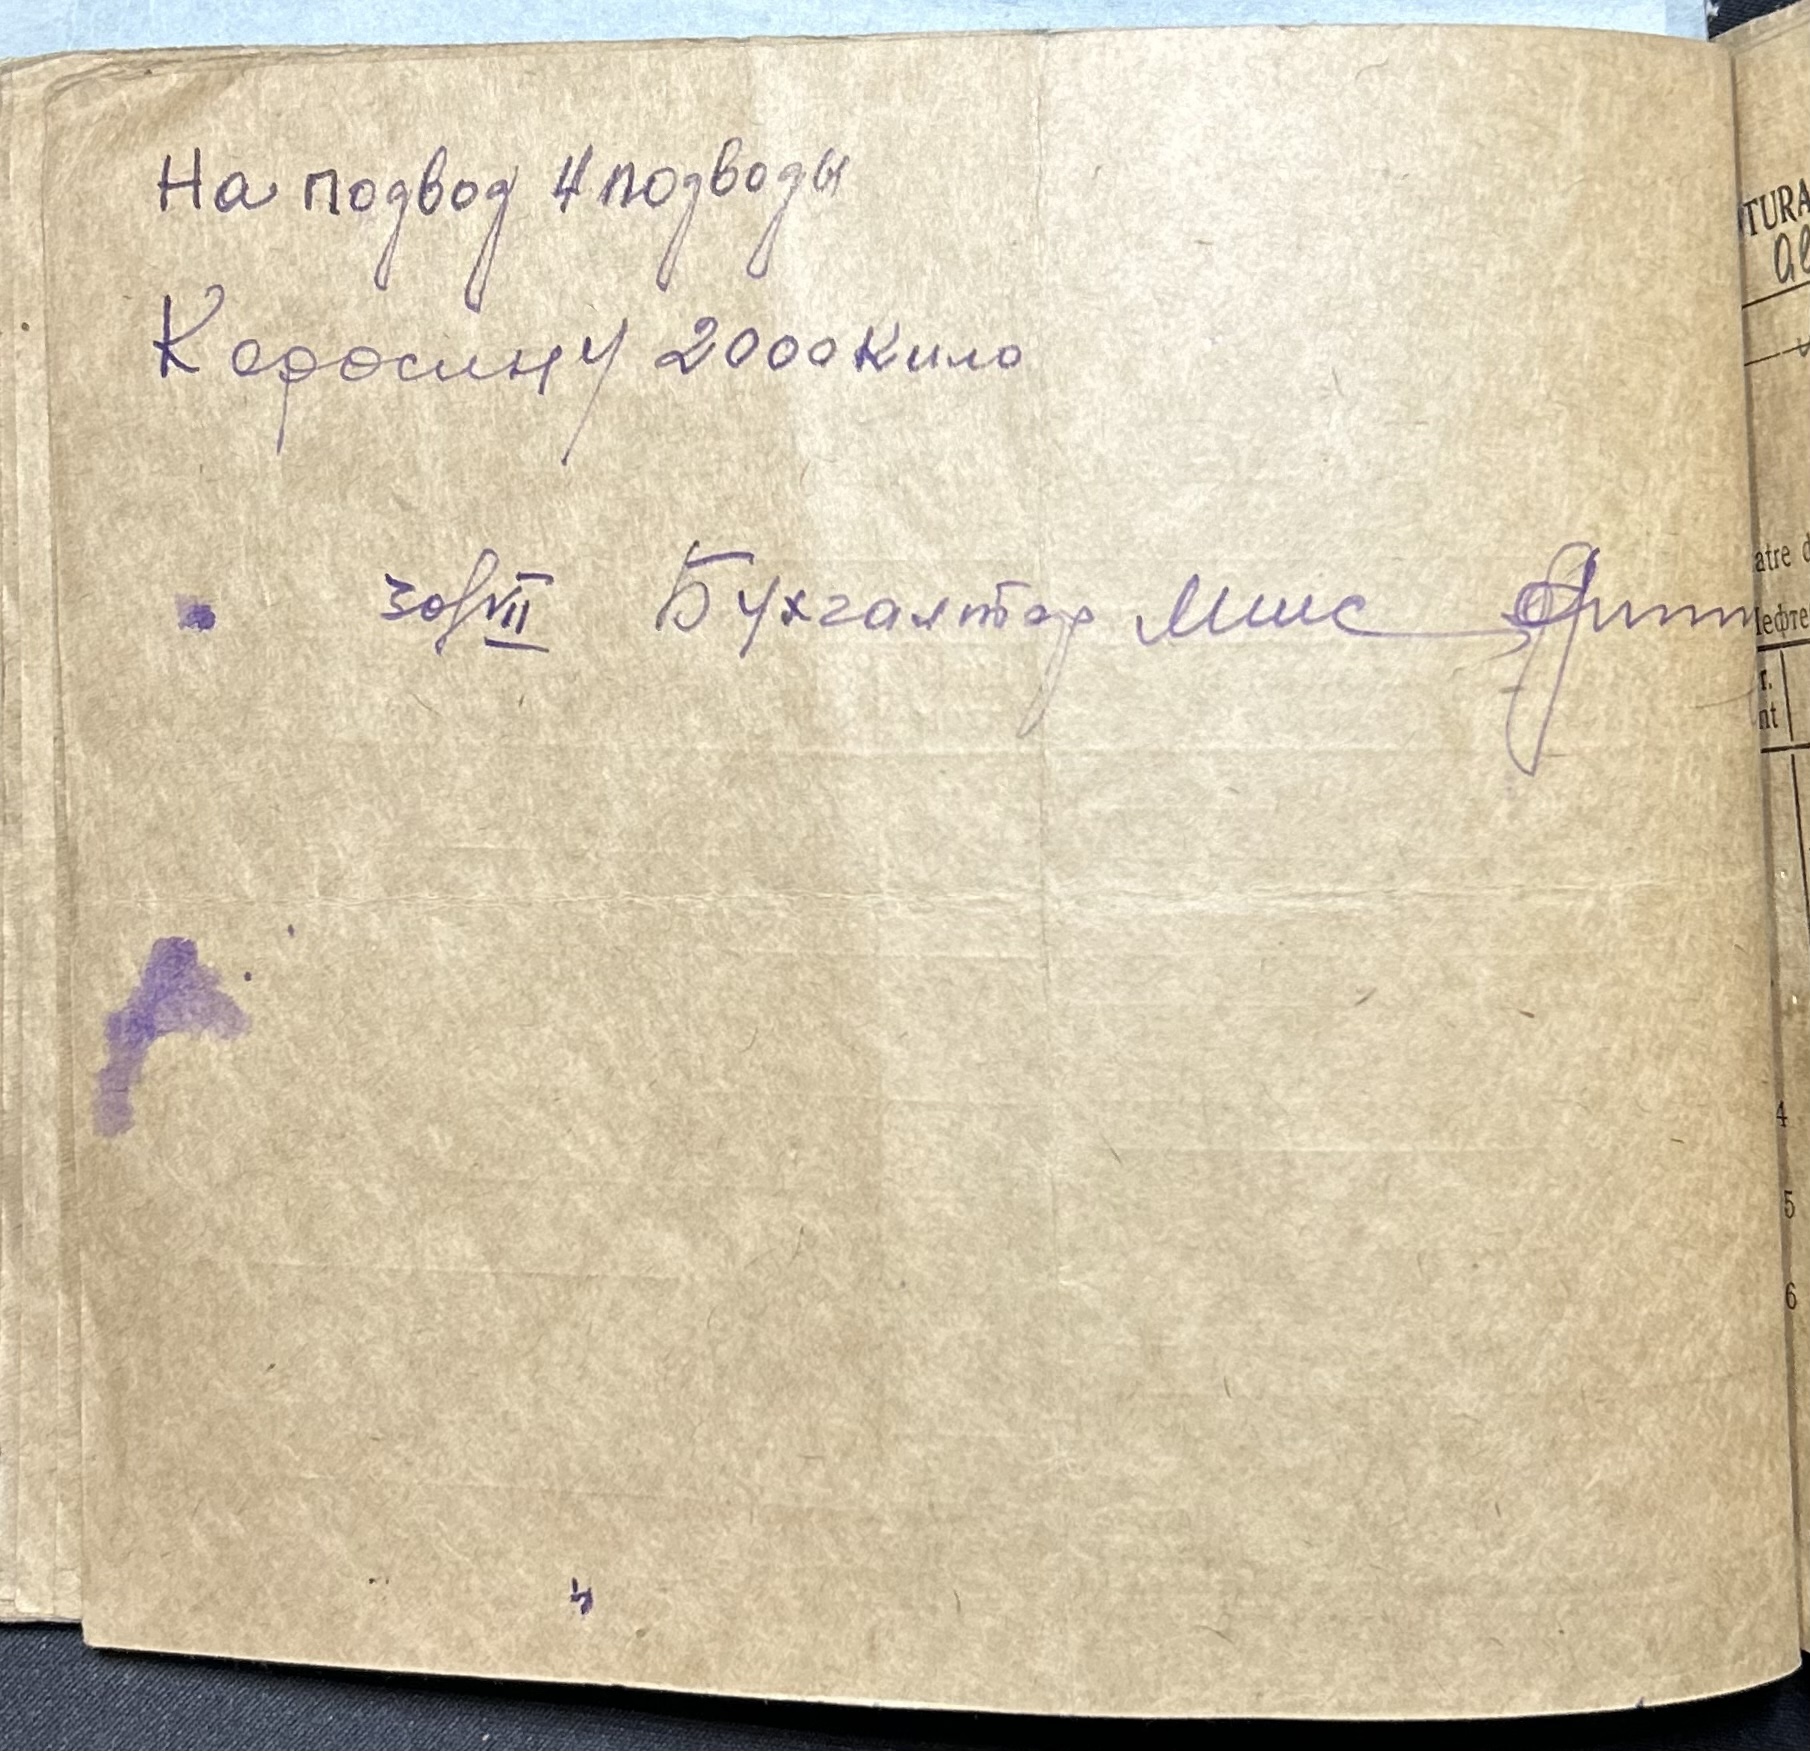 На подвод 4 подводы
Керосину 2000 Кило
30/VII Бухгалтер ММС
TURA
atre d
Нефте
r.
nt
4
5
6